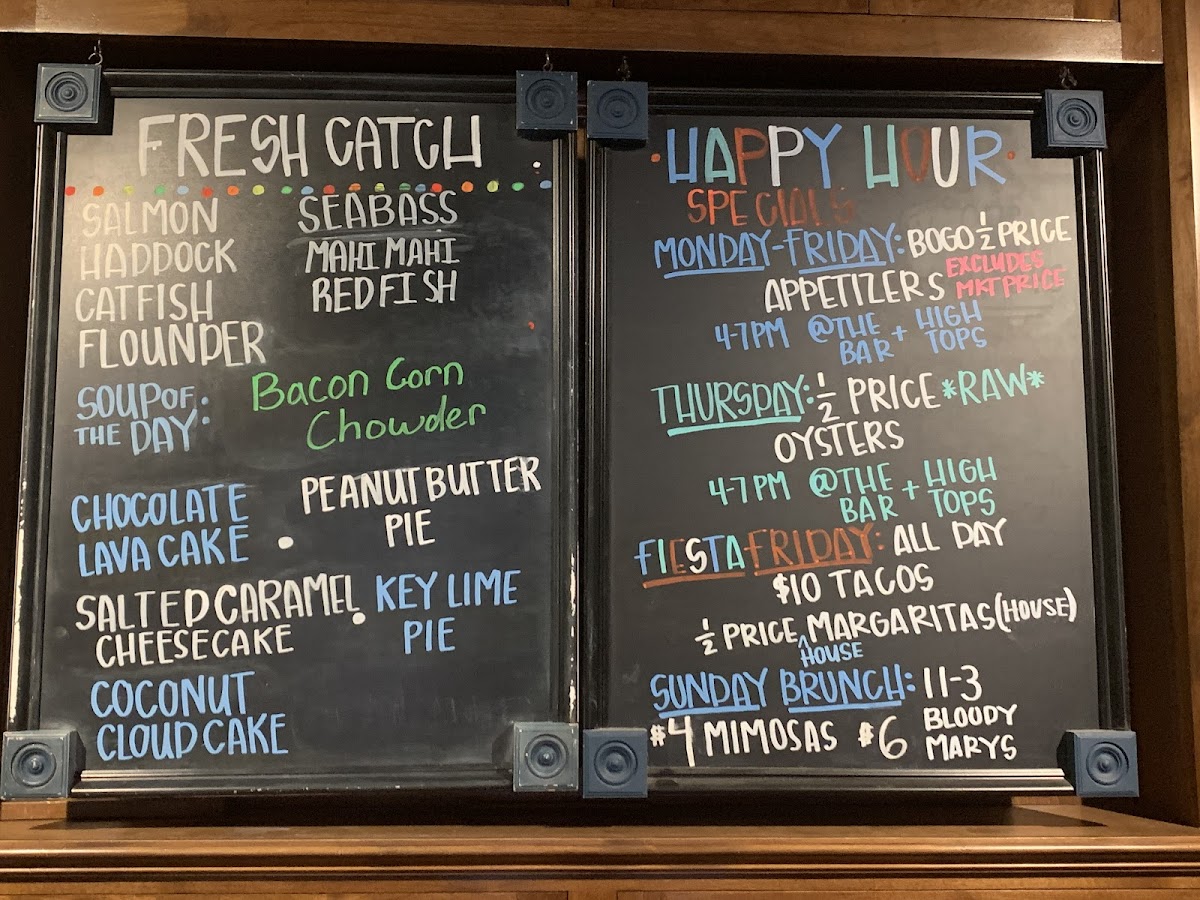 FRESH CATCH
SALMON
HADDOCK
CATFISH
FLOUNDER
SEABASS
MAHI MAHI
REDFISH
SOUP OF
THE DAY:
Bacon Corn
Chowder
CHOCOLATE
LAVA CAKE
PEANUT BUTTER
PIE
SALTED CARAMEL
CHEESECAKE
KEY LIME
PIE
COCONUT
CLOUD CAKE
HAPPY HOUR
SPECIALS
MONDAY-FRIDAY: BOGO 1/2 PRICE
APPETIZERS EXCLUDES
MKT PRICE
4-7PM @THE BAR + HIGH TOPS
THURSDAY: 1/2 PRICE *RAW*
OYSTERS
4-7PM @THE BAR + HIGH TOPS
FIESTA FRIDAY: ALL DAY
$10 TACOS
1/2 PRICE ^ MARGARITAS (HOUSE)
HOUSE
SUNDAY BRUNCH: 11-3
$4 MIMOSAS $6 BLOODY MARYS